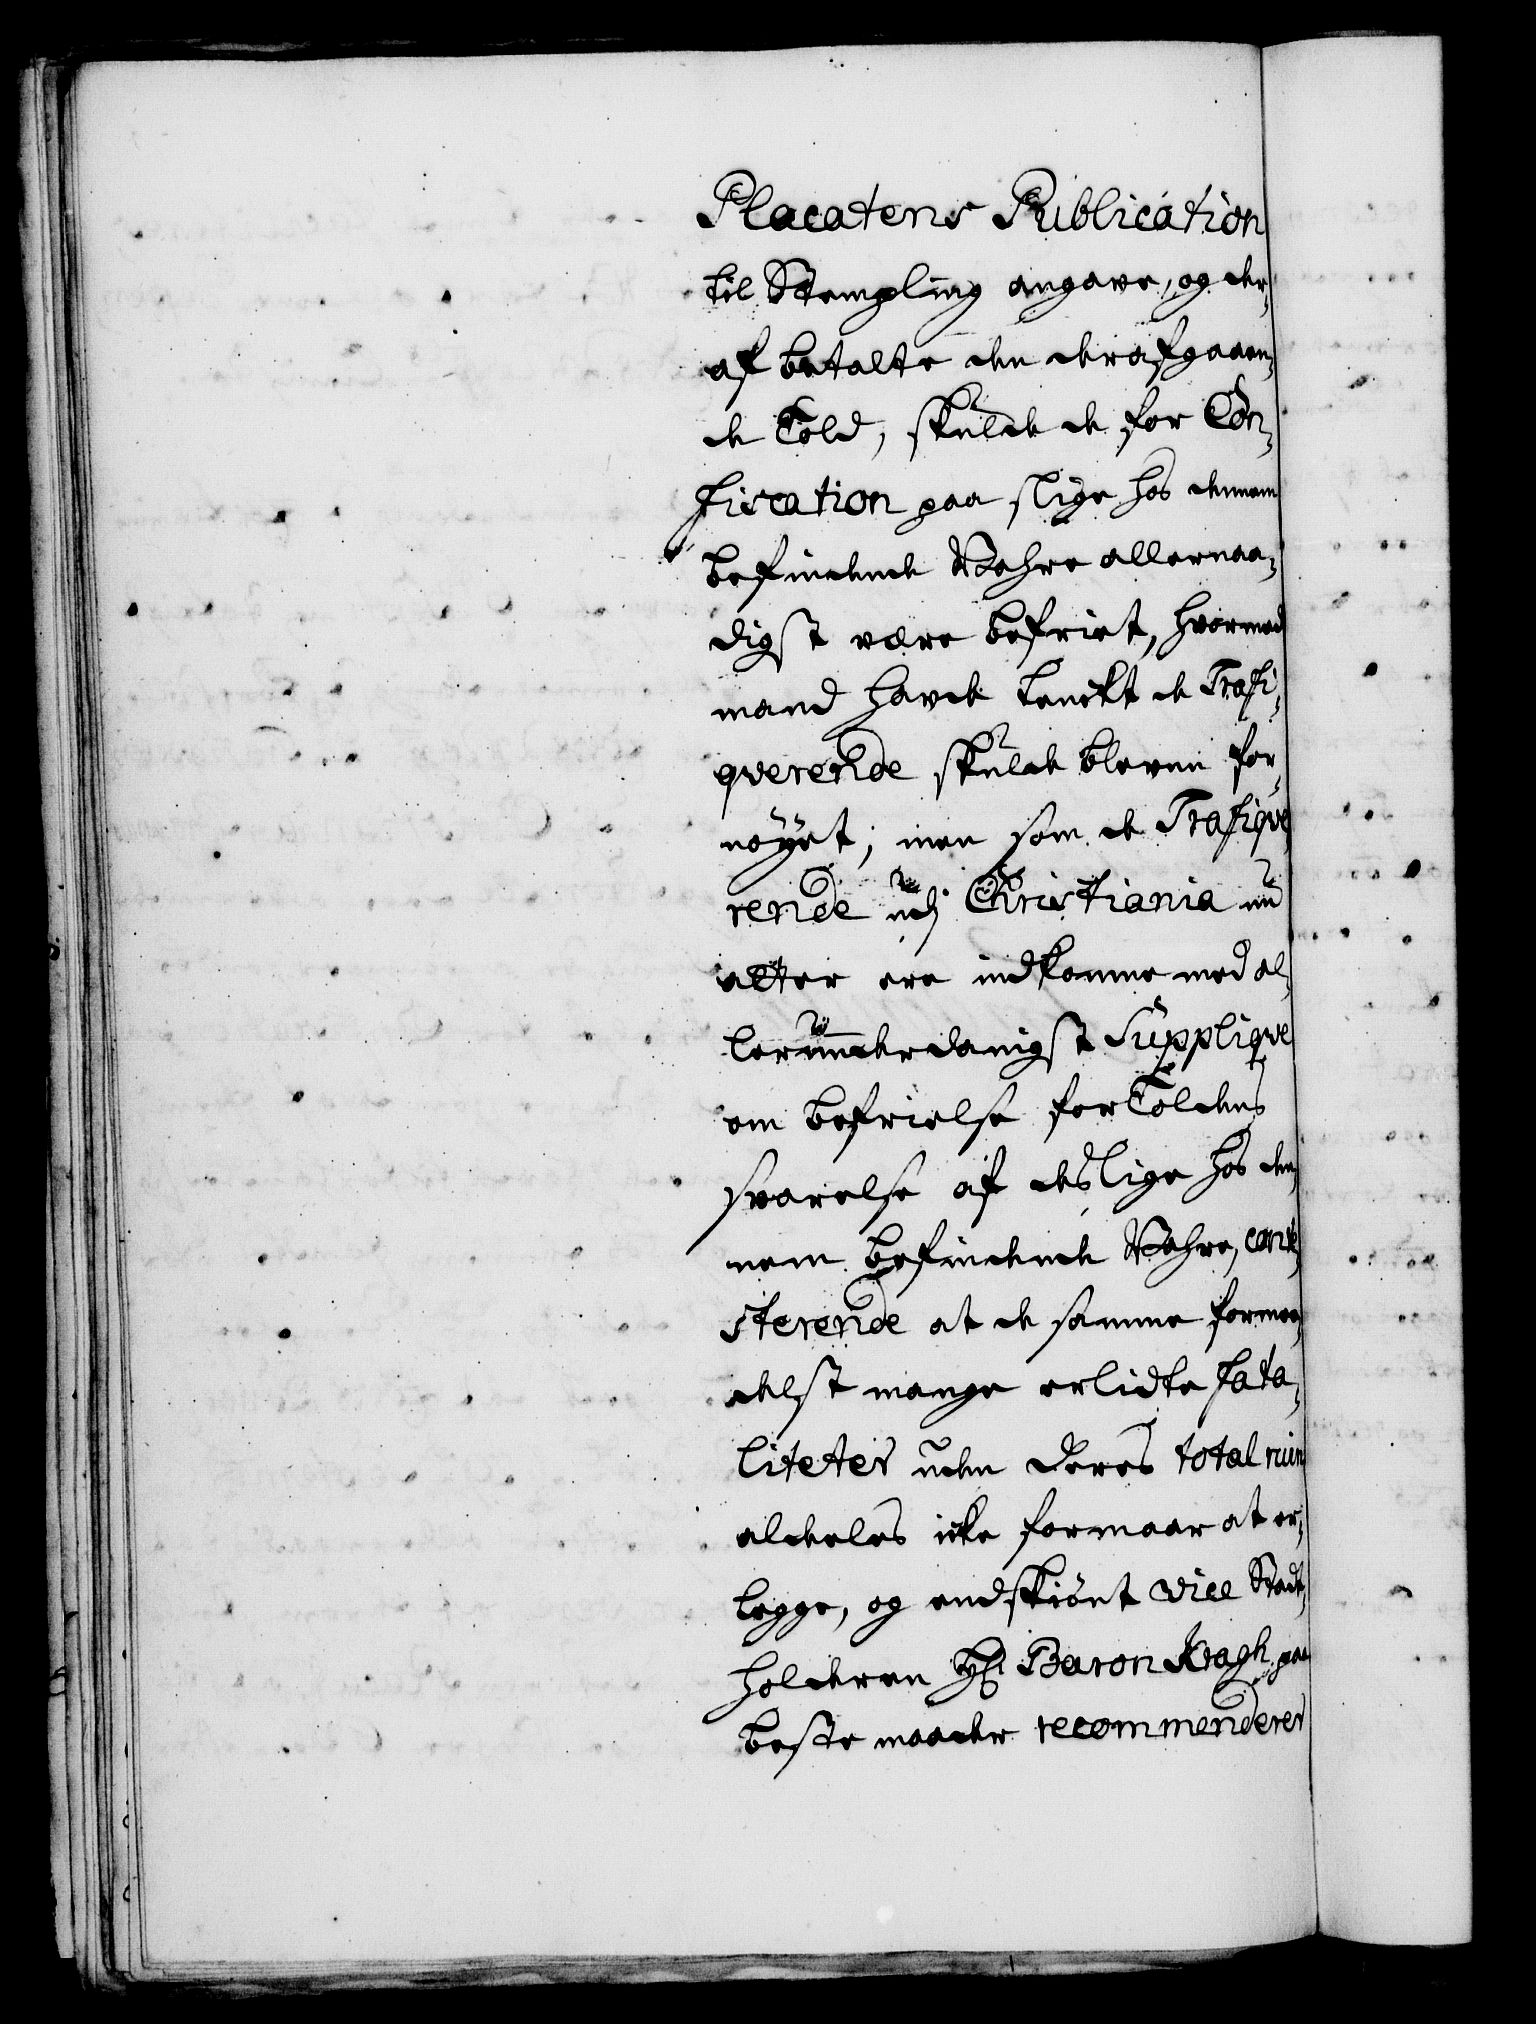 Placatens Publication
til Stempling angave, og der-
af betalte den derafgaaen-
de Told, skulde de for Con-
fiscation paa slige hos dennem
befindende Wahre allernaa-
digst være befriet, hvormed
mand havde tenckt de Trafi-
qverende skulde bleven for-
nöyet; men som de Trafiqve
rende udj Christiania nu
atter ere indkomme med al-
lerunderdanigst Supplique
om befrielse for Toldens
svarelse af deslige hos den-
nem befindende Wahre, conte-
sterende at de samme forme-
delst mange erlidte fata-
liteter uden deres total ruin
aldeles icke formaar at er-
legge, og endskiönt Vice Stadt-
holderen Hr Baron Kragh paa
beste maader recommenderer